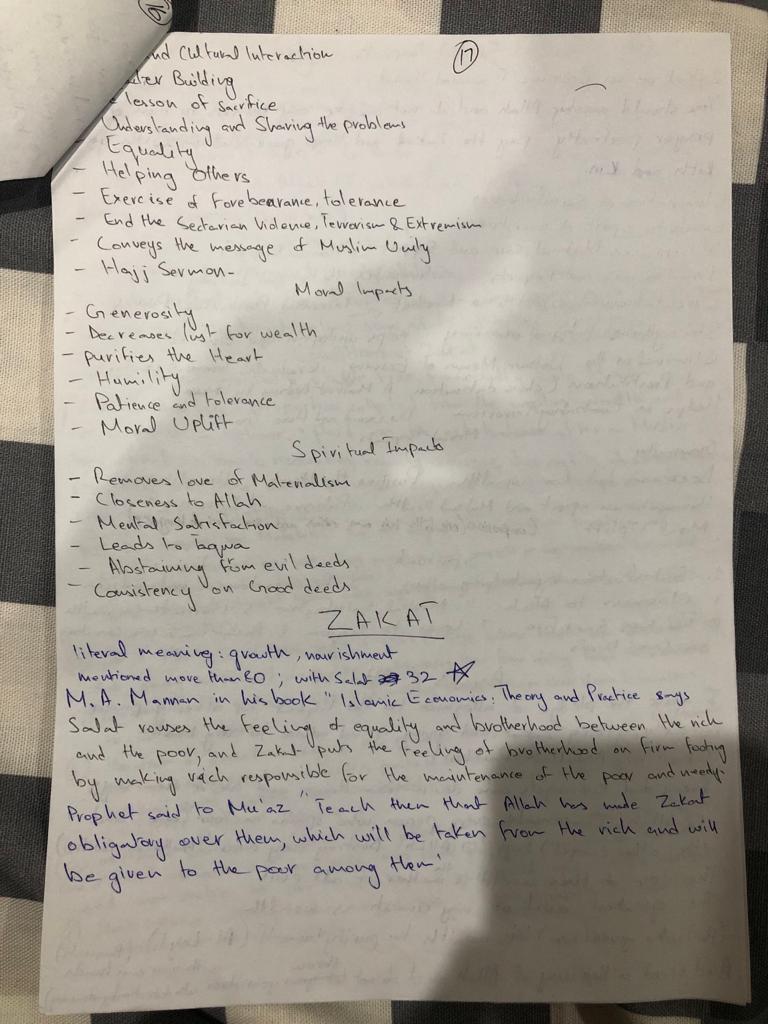 16
17
nd Cultural Interaction
ter Building
lesson of sacrifice
Understanding and Sharing the problems
- Equality
- Helping Others
- Exercise of Forebearance, tolerance
- End the Sectarian Violence, Terrorism & Extremism
- Conveys the message of Muslim Unity
- Hajj Sermon-
Moral Impacts
- Generosity
- Decreases lust for wealth
- purifies the Heart
- Humility
- Patience and tolerance
- Moral Uplift
Spiritual Impacts
- Removes love of Materialism
- Closeness to Allah
- Mental Satisfaction
- Leads to Taqwa
- Abstaining from evil deeds
- Consistency on Good deeds
ZAKAT
literal meaning: growth, nourishment
mentioned more than 80; with Salat 32 ☆
M. A. Mannan in his book "Islamic Economics: Theory and Practice says
Salat rouses the feeling of equality and brotherhood between the rich
and the poor, and Zakat puts the feeling of brotherhood on firm footing
by making rich responsible for the maintenance of the poor and needy.
Prophet said to Mu'az "Teach them that Allah has made Zakat
obligatory over them, which will be taken from the rich and will
be given to the poor among them'